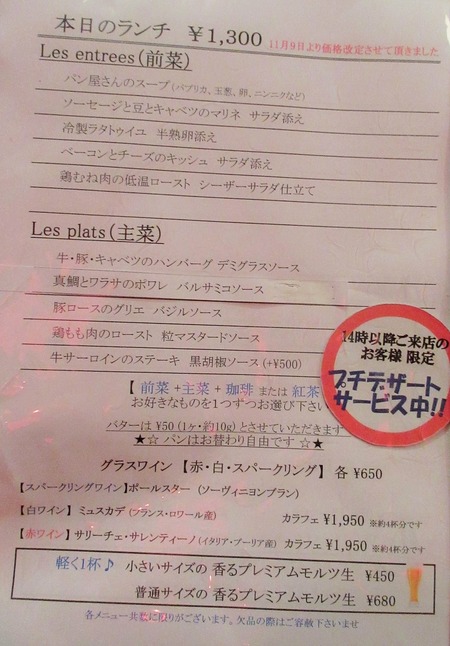 本日のランチ ￥1,300 11月9日より価格改定させて頂きました
Les entrees(前菜)
パン屋さんのスープ(パプリカ、玉葱、卵、ニンニクなど)
ソーセージと豆とキャベツのマリネ サラダ添え
冷製ラタトゥイユ 半熟卵添え
ベーコンとチーズのキッシュ サラダ添え
鶏むね肉の低温ロースト シーザーサラダ仕立て
Les plats(主菜)
牛・豚・キャベツのハンバーグ デミグラスソース
真鯛とワラサのポワレ バルサミコソース
豚ロースのグリエ バジルソース
鶏もも肉のロースト 粒マスタードソース
牛サーロインのステーキ 黒胡椒ソース(+¥500)
14時以降ご来店の
お客様 限定
プチデザート
サービス中!!
【 前菜 +主菜 + 珈琲 または 紅茶
お好きなものを1つずつお選び下さい
バターは ¥50 (1ヶ・約10g) とさせていただきます
★☆ パンはお替わり自由です ☆★
グラスワイン 【 赤・白・スパークリング】 各 ¥650
【スパークリングワイン】ポールスター (ソーヴィニヨンブラン)
【白ワイン】 ミュスカデ (フランス・ロワール産) カラフェ ¥1,950 ※約4杯分です
【赤ワイン】 サリーチェ・サレンティーノ (イタリア・プーリア産) カラフェ ¥1,950 ※約4杯分です
軽く1杯♪ 小さいサイズの 香るプレミアムモルツ生 ¥450
普通サイズの 香るプレミアムモルツ生 ¥680
各メニュー共数に限りがございます。欠品の際はご容赦下さいませ